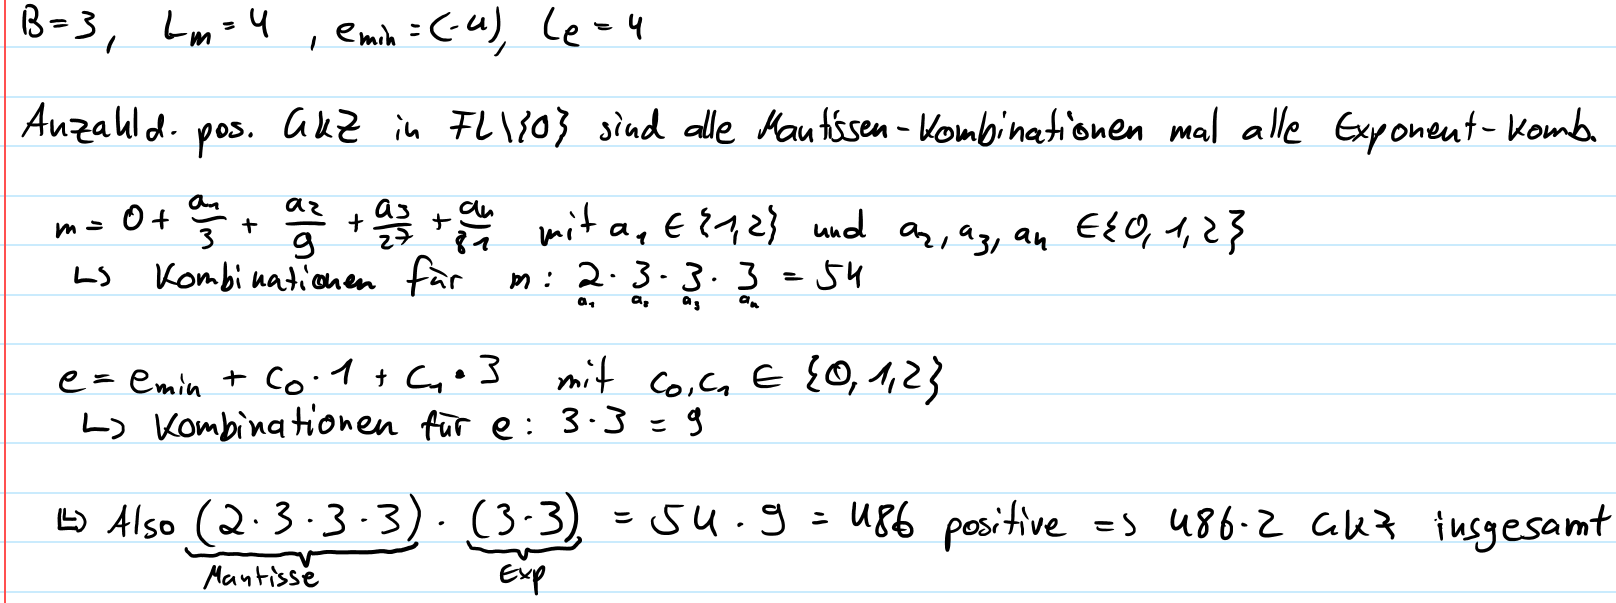 B=3, Lm=4, emin=(-4), Le=4
Anzahl d. pos. GKZ in FL\{0} sind alle Mantissen-Kombinationen mal alle Exponent-Komb.
m = 0 + a₁/3 + a₂/9 + a₃/27 + a₄/81 mit a₁ ∈ {1,2} und a₂, a₃, a₄ ∈ {0, 1, 2}
↳ Kombinationen für m: 2 · 3 · 3 · 3 = 54
a₁ a₂ a₃ a₄
e = emin + c₀ · 1 + c₁ · 3 mit c₀, c₁ ∈ {0, 1, 2}
↳ Kombinationen für e: 3 · 3 = 9
↳ Also (2 · 3 · 3 · 3) · (3 · 3) = 54 · 9 = 486 positive => 486 · 2 GKZ insgesamt
Mantisse Exp